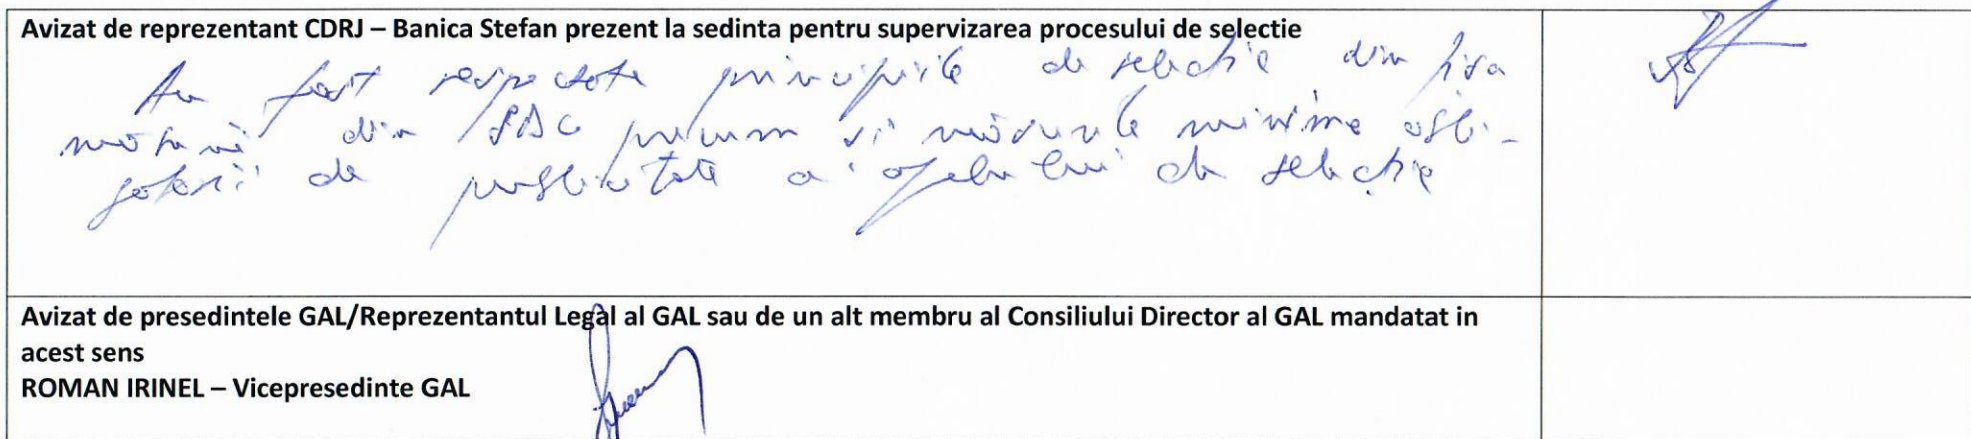 Avizat de reprezentant CDRJ – Banica Stefan prezent la sedinta pentru supervizarea procesului de selectie
Au fost respectate principiile de selectie din fisa
măsurii din SDL precum si măsurile minime obli-
gatorii de publicitate a apelului de selecție
Avizat de presedintele GAL/Reprezentantul Legal al GAL sau de un alt membru al Consiliului Director al GAL mandatat in
acest sens
ROMAN IRINEL – Vicepresedinte GAL